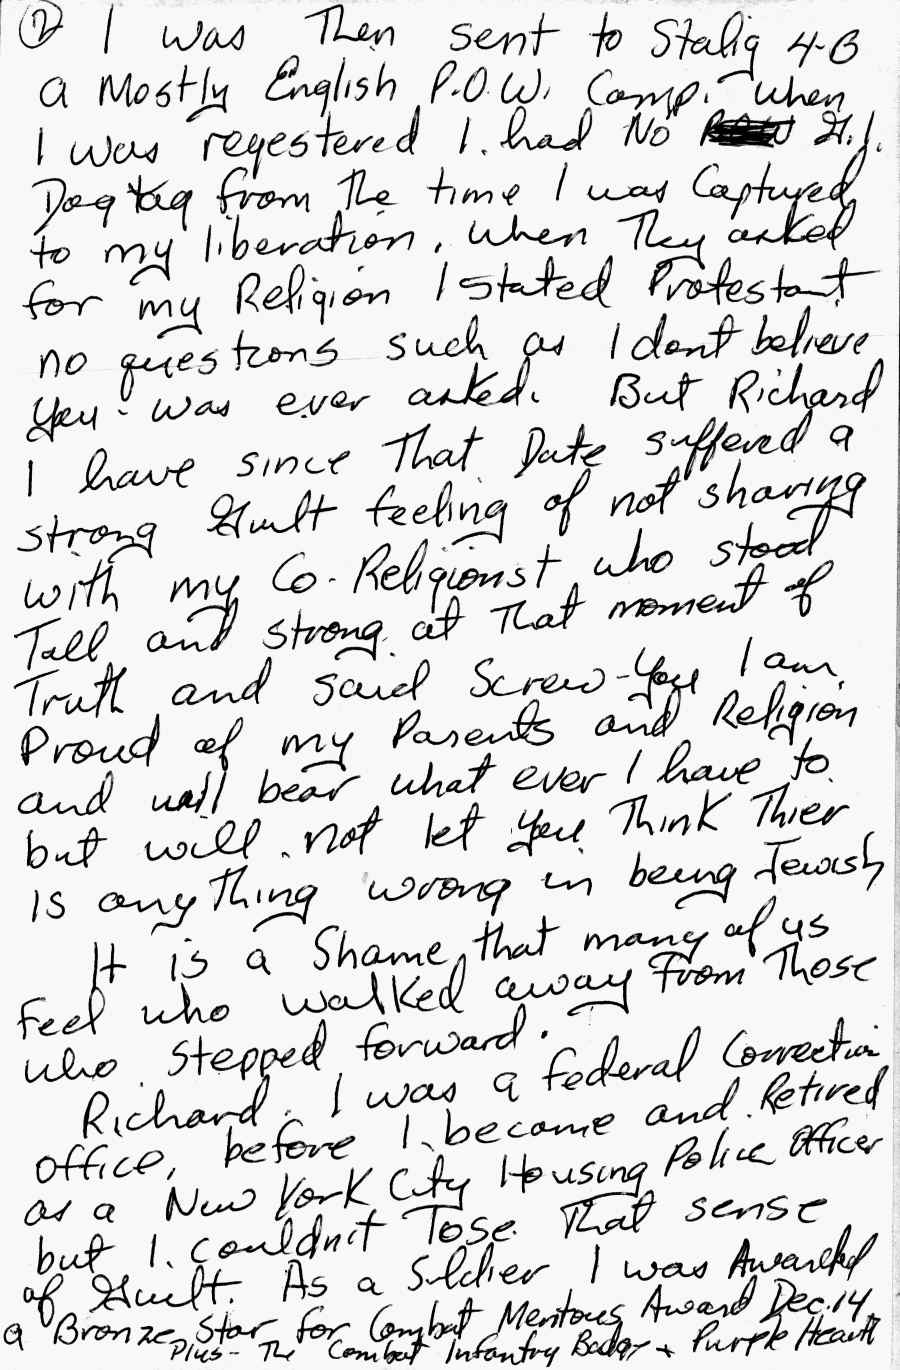 ② I was Then sent to Stalig 4-B
a Mostly English P.O.W. Camp. when
I was regestered I had No G.I.
Dog tag from The time I was Captured
to my liberation. when They asked
for my Religion I stated Protestant
no questions such as I dont believe
you - was ever asked. But Richard
I have since That Date suffered a
strong Guilt feeling of not sharing
with my Co-Religionist who stood
Tall and strong at That moment of
Truth and said Screw-You I am
Proud of my Parents and Religion
and will bear what ever I have to
but will not let you Think Thier
is any Thing wrong in being Jewish
It is a Shame that many of us
feel who walked away from Those
who stepped forward.
Richard. I was a federal Correction
office, before I become and Retired
as a New York City Housing Police Officer
but I couldn't Tose That sense
of Guilt. As a Soldier I was Awarded
a Bronze Star for Combat Meritous Award Dec. 14
Plus - The Combat Infantry Badge + Purple Heart